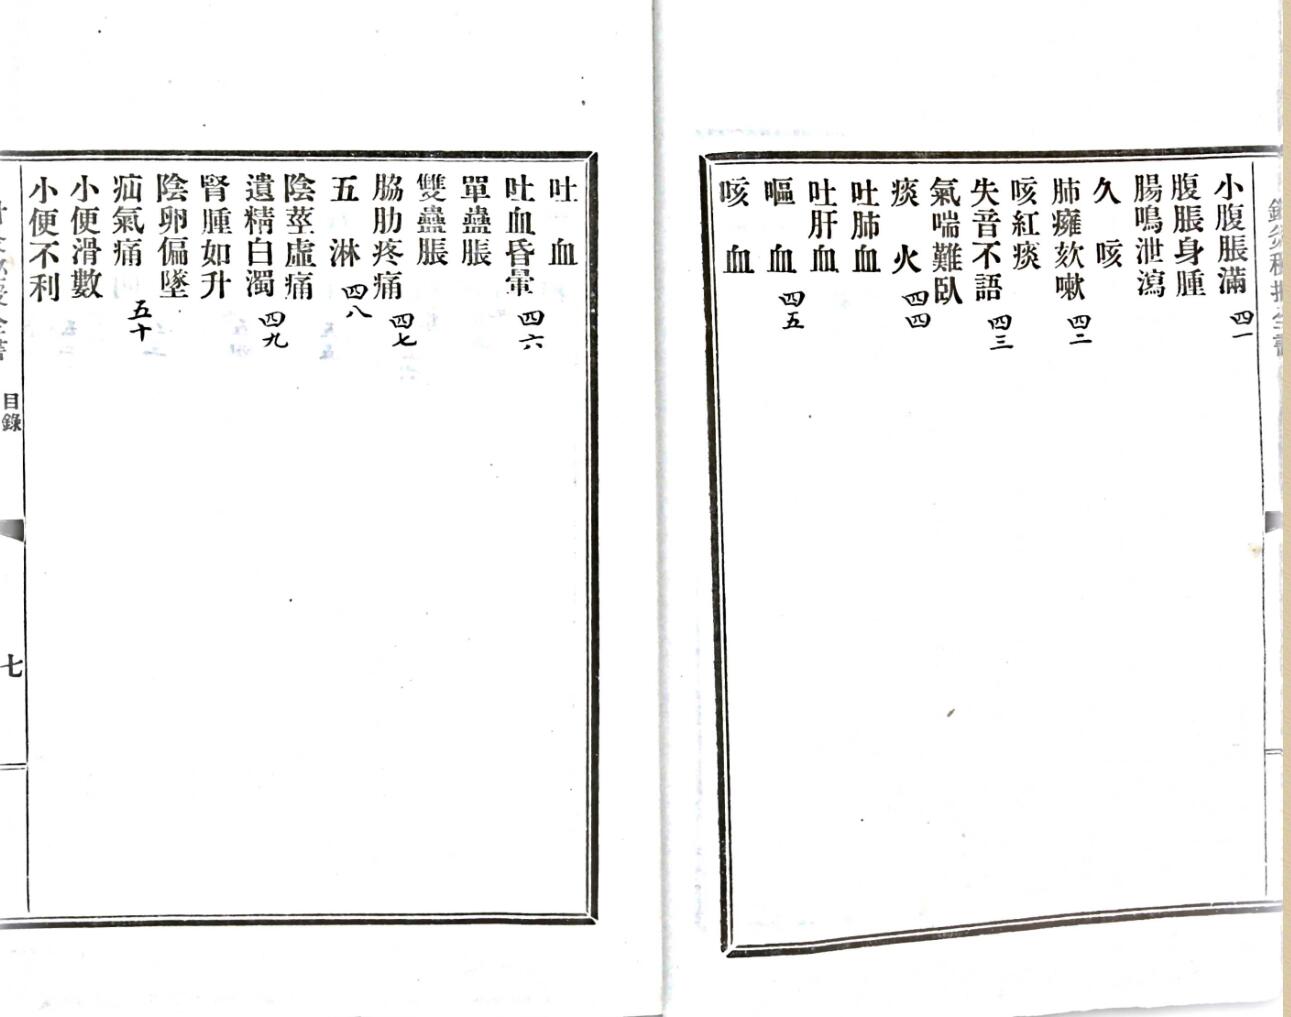 小腹脹滿 四一
腹脹身腫
腸鳴泄瀉
久咳
肺癰欬嗽 四二
咳紅痰
失音不語 四三
氣喘難臥
痰火 四四
吐肺血
吐肝血
嘔血 四五
咳血
吐血
吐血昏暈 四六
單蠱脹
雙蠱脹
脇肋疼痛 四七
五淋 四八
陰莖虛痛
遺精白濁 四九
腎腫如升
陰卵偏墜
疝氣痛 五十
小便滑數
小便不利
目錄
七